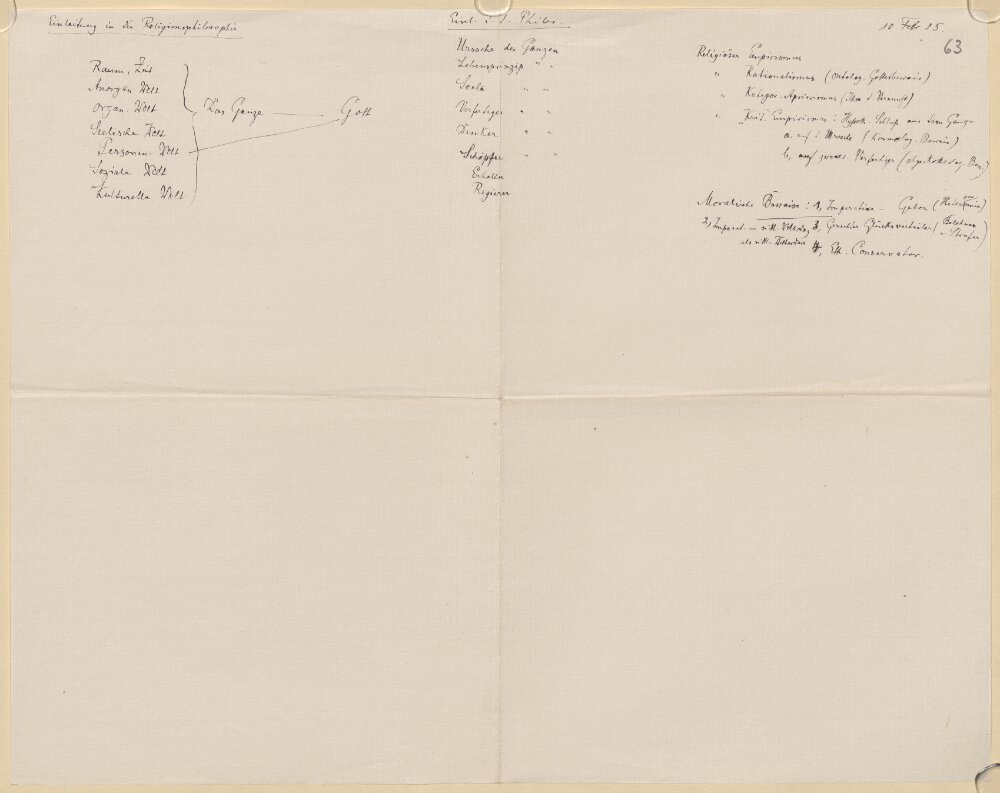 Einleitung in die Religionsphilosophie
Raum, Zeit
Anorgan. Welt
Organ. Welt
Seelische Welt
Personen-Welt
Soziale Welt
Kulturelle Welt
Das Ganze — Gott
Einl. i. d. Philos.
Ursache des Ganzen
Lebensprinzip " "
Seele " "
Verfertiger " "
Denker " "
Schöpfer " "
Erhalter
Regierer
10 Febr. 25.
63
Religiöser Empirismus
" Rationalismus (Ontolog. Gottesbeweis)
" Kategor. Apriorismus (Idee d. Vernunft)
" Krit. Empirismus: Hypoth. Schluss aus dem Ganzen
a. auf d. Ursache (Kosmolog. Beweis)
b, auf zwecks. Verfertiger (
Moralische Beweise: 1, Imperative - Geber (Heteronomie)
2, Imperat. 3, Gerechter Glücksverteiler (Belohner u. Strafer)
als 4, Eth. Conservator.